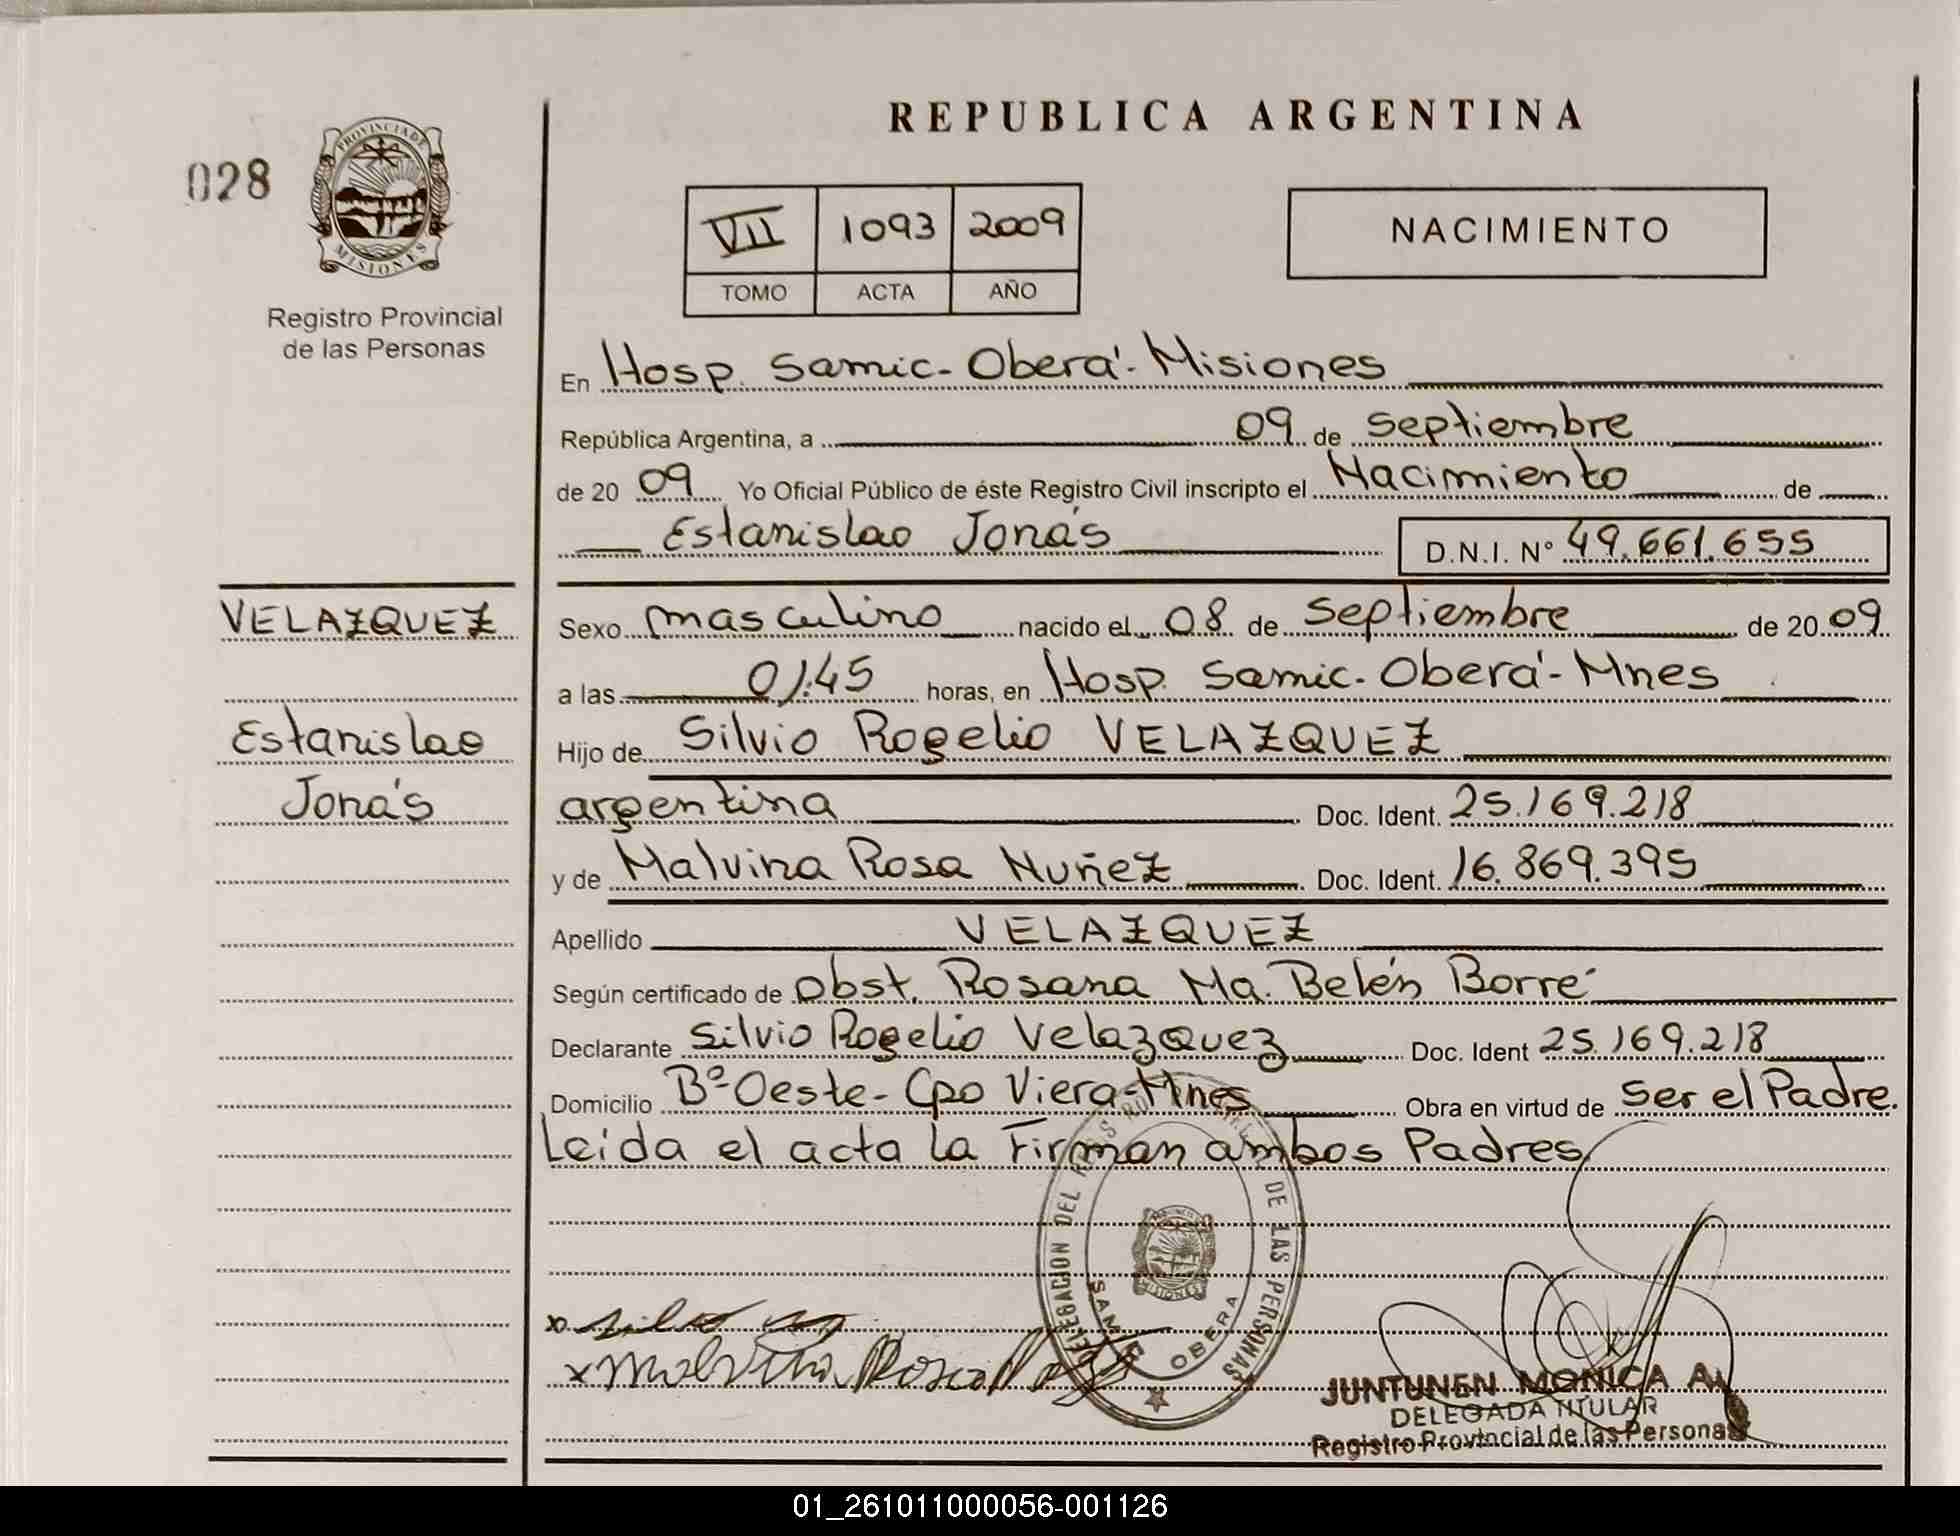 REPUBLICA ARGENTINA
028
PROVINCIA DE
MISIONES
Registro Provincial
de las Personas
VII 1093 2009
TOMO ACTA AÑO
NACIMIENTO
En Hosp. Samic-Oberá-Misiones
República Argentina, a 09 de septiembre
de 20 09 Yo Oficial Público de éste Registro Civil inscripto el Nacimiento de
Estanislao Jonás D.N.I. N° 49.661.655
VELAZQUEZ
Estanislao
Jonás
Sexo masculino nacido el 08 de septiembre de 20 09
a las 01:45 horas, en Hosp. Samic-Oberá-Mnes
Hijo de Silvio Rogelio VELAZQUEZ
argentina Doc. Ident. 25.169.218
y de Malvina Rosa Nuñez Doc. Ident. 16.869.395
Apellido VELAZQUEZ
Según certificado de Obst. Rosana Ma. Belén Borré
Declarante Silvio Rogelio Velazquez Doc. Ident 25.169.218
Domicilio Bº Oeste-Cpo Viera-Mnes Obra en virtud de Ser el Padre.
Leída el acta la Firman ambos Padres
DELEGACION DEL DE LAS PERSONAS
OBERA
x Malvina Rosa
JUNTUNEN MONICA A.
DELEGADA TITULAR
Registro Provincial de las Personas
01_261011000056-001126